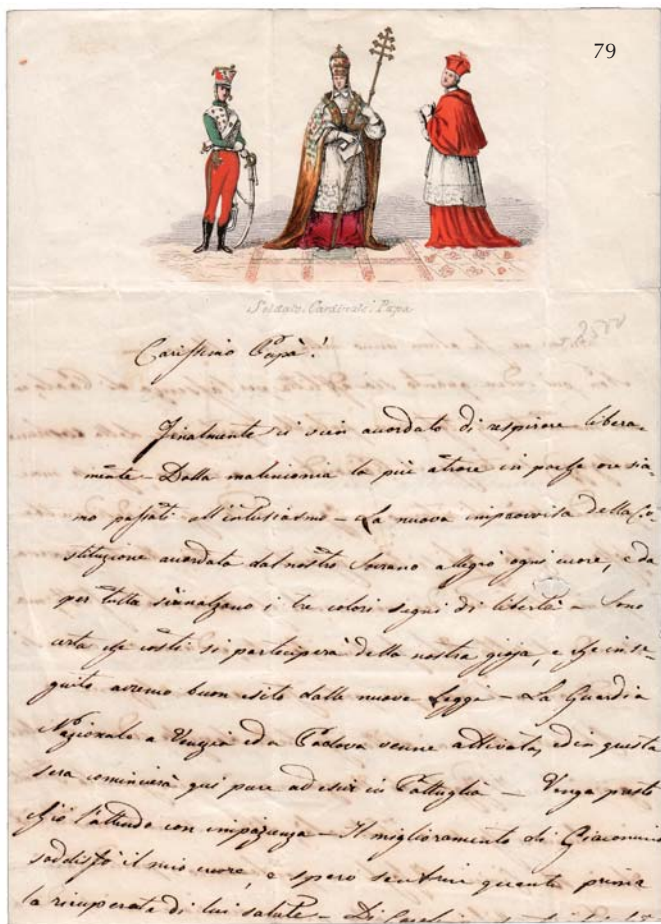 79
Soldato. Cardinale. Papa
2500
Carissimo Papà!
Finalmente ci vien accordato di respirare libera-
mente – Dalla malinconia la più atroce in poche ore sia-
mo passati all'entusiasmo – La nuova improvvisa della Co-
stituzione accordata dal nostro Sovrano allegrò ogni cuore, e da
per tutto s'innalzano i tre colori segni di libertà – Sono
certa che costì si parteciperà della nostra gioja, e che in se-
guito avremo buon esito dalle nuove Leggi – La Guardia
Nazionale a Venezia ed a Padova venne attivata, ed in questa
sera comincierà quì pure ad escir in Pattuglia – Venga presto
ch'io l'attendo con impazienza – Il miglioramento di Giacomino
soddisfò il mio cuore, e spero sentirne quanto prima
la ricuperata di lui salute – Di